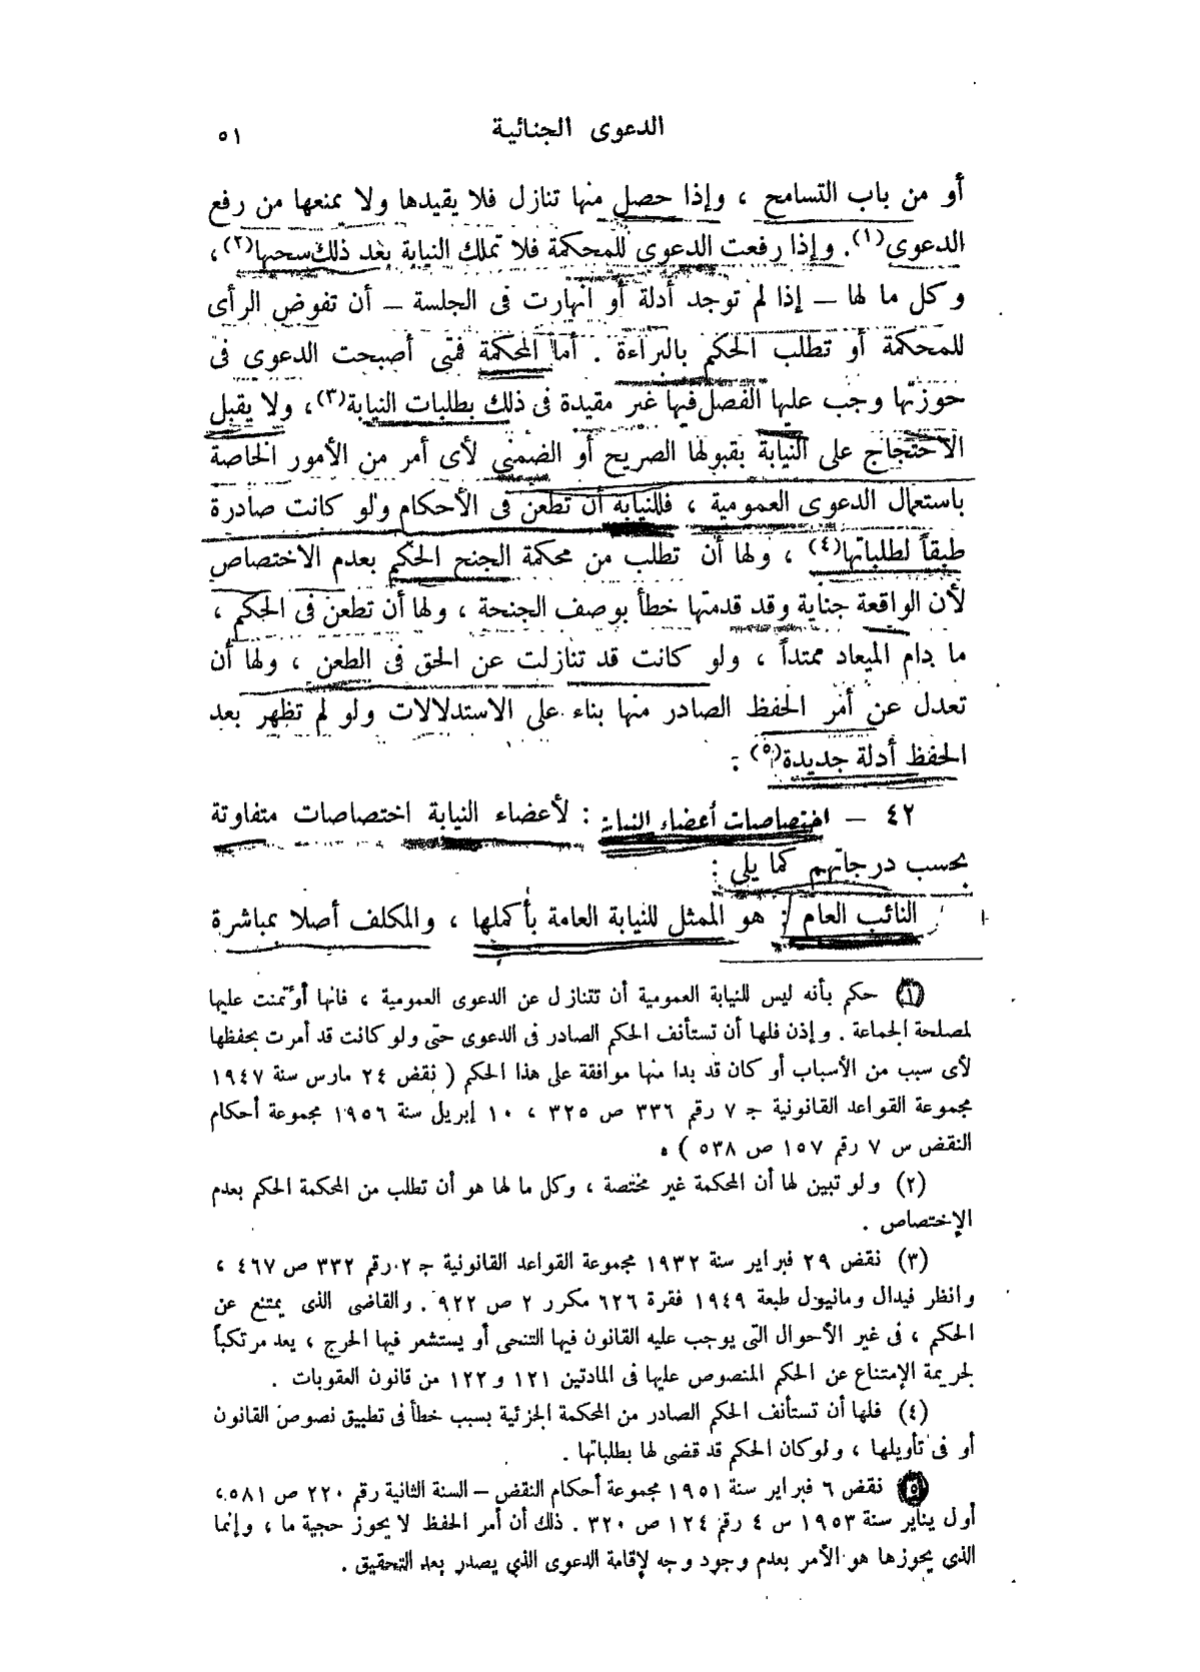 الدعوى الجنائية ٥١
أو من باب التسامح ، وإذا حصل منها تنازل فلا يقيدها ولا يمنعها من رفع
الدعوى(١). وإذا رفعت الدعوى للمحكمة فلا تملك النيابة بعد ذلك سحبها(٢)،
وكل ما لها – إذا لم توجد أدلة أو انهارت فى الجلسة – أن تفوض الرأى
للمحكمة أو تطلب الحكم بالبراءة . أما المحكمة فمتى أصبحت الدعوى فى
حوزتها وجب عليها الفصل فيها غير مقيدة فى ذلك بطلبات النيابة(٣)، ولا يقبل
الاحتجاج على النيابة بقبولها الصريح أو الضمنى لأى أمر من الأمور الخاصة
باستعمال الدعوى العمومية ، فللنيابة أن تطعن فى الأحكام ولو كانت صادرة
طبقاً لطلباتها(٤) ، ولها أن تطلب من محكمة الجنح الحكم بعدم الاختصاص
لأن الواقعة جناية وقد قدمتها خطأ بوصف الجنحة ، ولها أن تطعن فى الحكم ،
ما دام الميعاد ممتداً ، ولو كانت قد تنازلت عن الحق فى الطعن ، ولها أن
تعدل عن أمر الحفظ الصادر منها بناء على الاستدلالات ولو لم تظهر بعد
الحفظ أدلة جديدة(٥) .
٤٢ – اختصاصات أعضاء النيابة : لأعضاء النيابة اختصاصات متفاوتة
بحسب درجاتهم كما يلى :
النائب العام : هو الممثل للنيابة العامة بأكملها ، والمكلف أصلا بمباشرة
(١) حكم بأنه ليس للنيابة العمومية أن تتنازل عن الدعوى العمومية ، فانها أؤتمنت عليها
لمصلحة الجماعة . وإذن فلها أن تستأنف الحكم الصادر فى الدعوى حتى ولو كانت قد أمرت بحفظها
لأى سبب من الأسباب أو كان قد بدا منها موافقة على هذا الحكم ( نقض ٢٤ مارس سنة ١٩٤٧
مجموعة القواعد القانونية ج ٧ رقم ٣٣٦ ص ٣٢٥ ، ١٠ إبريل سنة ١٩٥٦ مجموعة أحكام
النقض س ٧ رقم ١٥٧ ص ٥٣٨ ) .
(٢) ولو تبين لها أن المحكمة غير مختصة ، وكل ما لها هو أن تطلب من المحكمة الحكم بعدم
الإختصاص .
(٣) نقض ٢٩ فبراير سنة ١٩٣٢ مجموعة القواعد القانونية ج ٢ رقم ٣٣٢ ص ٤٦٧ ،
وانظر فيدال ومانيول طبعة ١٩٤٩ فقرة ٦٢٦ مكرر ٢ ص ٩٢٢ . والقاضى الذى يمتنع عن
الحكم ، فى غير الأحوال التى يوجب عليه القانون فيها التنحى أو يستشعر فيها الحرج ، يعد مرتكباً
لجريمة الإمتناع عن الحكم المنصوص عليها فى المادتين ١٢١ و ١٢٢ من قانون العقوبات .
(٤) فلها أن تستأنف الحكم الصادر من المحكمة الجزئية بسبب خطأ فى تطبيق نصوص القانون
أو فى تأويلها ، ولو كان الحكم قد قضى لها بطلباتها .
(٥) نقض ٦ فبراير سنة ١٩٥١ مجموعة أحكام النقض – السنة الثانية رقم ٢٢٠ ص ٥٨١ ،
أول يناير سنة ١٩٥٣ س ٤ رقم ١٢٤ ص ٣٢٠ . ذلك أن أمر الحفظ لا يحوز حجية ما ، وإنما
الذى يحوزها هو الأمر بعدم وجود وجه لإقامة الدعوى الذي يصدر بعد التحقيق .